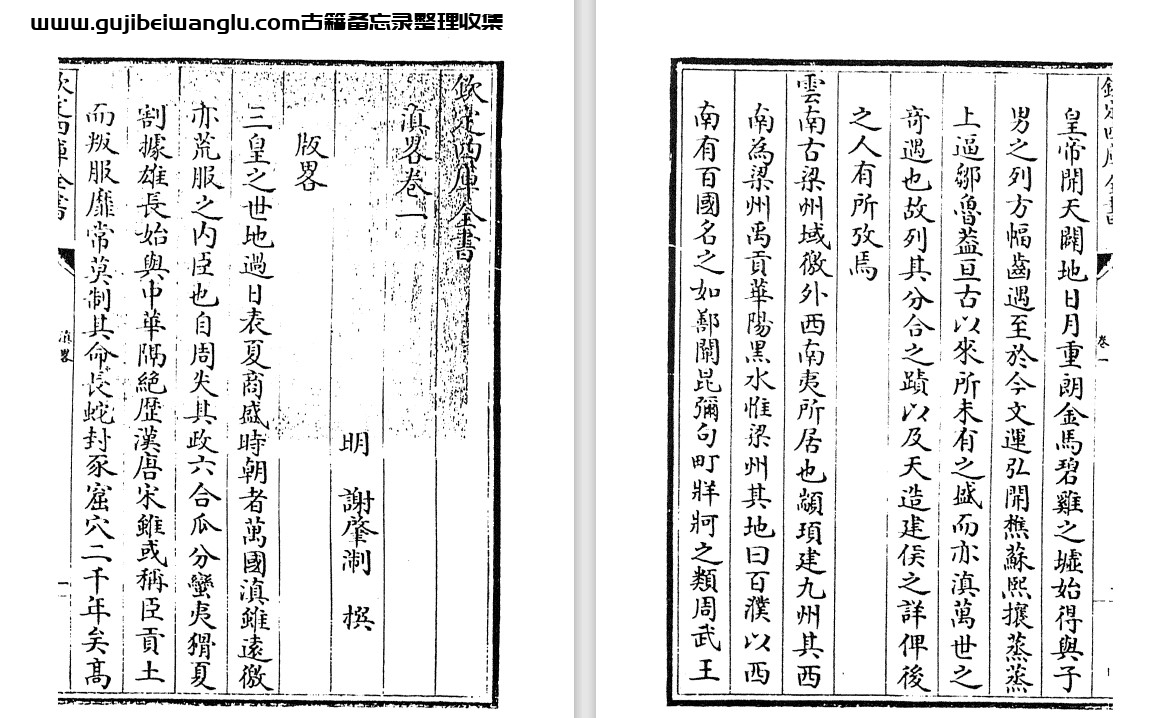 www.gujibeiwanglu.com古籍备忘录整理收集
欽定四庫全書
滇畧卷一
明 謝肇淛 撰
版畧
三皇之世地過日表夏商盛時朝者萬國滇雖遠徼
亦荒服之内臣也自周失其政六合瓜分蠻夷猾夏
割據雄長始與中華隔絶歴漢唐宋雖或稱臣貢土
而叛服靡常莫制其命長蛇封豕窟穴二千年矣髙
欽定四庫全書
滇畧
一
欽定四庫全書
卷一
皇帝開天闢地日月重朗金馬碧雞之墟始得與子
男之列方幅齒遇至於今文運弘開樵蘇熙攘蒸蒸
上逼鄒魯葢亘古以來所未有之盛而亦滇萬世之
竒遇也故列其分合之蹟以及天造建侯之詳俾後
之人有所攷焉
雲南古梁州域徼外西南夷所居也顓頊建九州其西
南為梁州禹貢華陽黒水惟梁州其地曰百濮以西
南有百國名之如鄯闡昆彌句町牂牁之類周武王